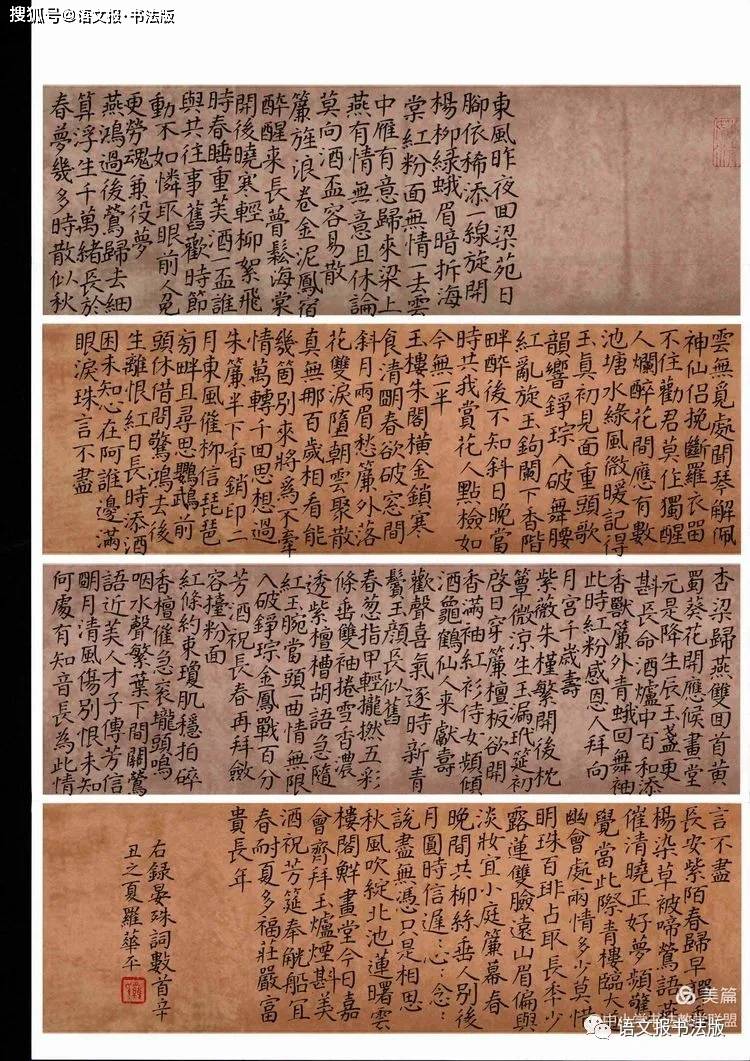 搜狐号@语文报·书法版
東風昨夜回梁苑日
腳依稀添一線旋開
楊柳綠蛾眉暗折海
棠紅粉面無情一去雲
中雁有意歸來梁上
燕有情無意且休論
莫向酒盃容易散
簾旌浪卷金泥鳳宿
醉醒來長瞢鬆海棠
開後曉寒輕柳絮飛
時春睡重美酒一盃誰
與共往事舊歡時節
動不如憐取眼前人免
更勞魂兼役夢
燕鴻過後鶯歸去細
算浮生千萬緒長於
春夢幾多時散似秋
雲無覓處聞琴解佩
神仙侶挽斷羅衣留
不住勸君莫作獨醒
人爛醉花間應有數
池塘水綠風微暖記得
玉真初見面重頭歌
韻響錚琮入破舞腰
紅亂旋玉鉤闌下香階
畔醉後不知斜日晚當
時共我賞花人點檢如
今無一半
玉樓朱閣橫金鎖寒
食清明春欲破窓間
斜月兩眉愁簾外落
花雙淚墮朝雲聚散
真無那百歲相看能
幾箇別來將為不牽
情萬轉千回思想過
朱簾半下香銷印二
月東風催柳信琵琶
旁畔且尋思鸚鵡前
頭休借問驚鴻去後
生離恨紅日長時添酒
困未知心在阿誰邊滿
眼淚珠言不盡
杏梁歸燕雙回首黃
蜀葵花開應候畫堂
元是降生辰玉盞更
斟長命酒爐中百和添
香獸簾外青蛾回舞袖
此時紅粉感恩人拜向
月宮千歲壽
紫薇朱槿繁開後枕
簟微涼生玉漏玳筵初
啓日穿簾檀板欲開
香滿袖紅衫侍女頻傾
酒龜鶴仙人來獻壽
歡聲喜氣逐時新青
鬢玉顏長似舊
春葱指甲輕攏撚五彩
條垂雙袖捲雪香濃
透紫檀槽胡語急隨
紅玉腕當頭曲情無限
入破錚琮金鳳戰百分
芳酒祝長春再拜斂
容擡粉面
紅條約束瓊肌穩拍碎
香檀催急衮壠頭嗚
咽水聲繁葉下間關鶯
語近美人才子傳芳信
明月清風傷別恨未知
何處有知音長為此情
言不盡
長安紫陌春歸早嚲
楊染草被啼鶯語燕
催清曉正好夢頻驚
覺當此際青樓臨大
幽會處兩情多少莫惜
明珠百琲占取長年少
露蓮雙臉遠山眉偏與
淡妝宜小庭簾幕春
晚間共柳絲垂人別後
月圓時信遲心:念:
說盡無憑只是相思
秋風吹綻北池蓮曙雲
樓閣鮮畫堂今日嘉
會齊拜玉爐煙斟美
酒祝芳筵奉觥船宜
春耐夏多福莊嚴富
貴長年
右錄晏珠詞數首辛
丑之夏羅華平
美篇
语文报书法版